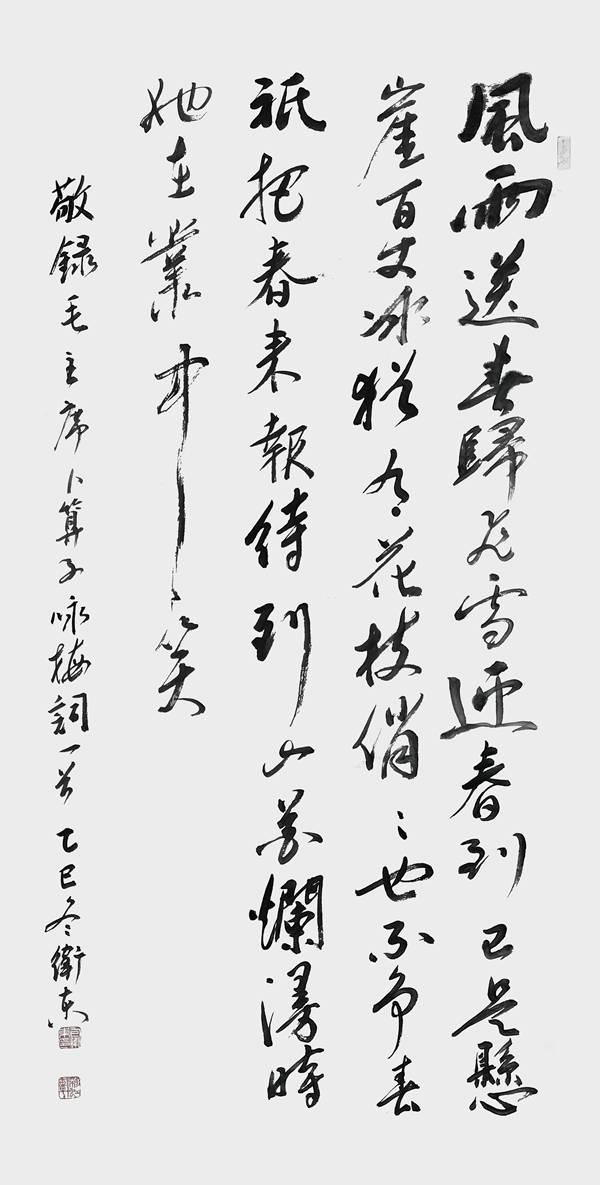 風雨送春歸飛雪迎春到已是懸
崖百丈冰猶有花枝俏〻也不争春
祇把春来報待到山花爛漫時
她在叢中笑
敬録毛主席卜算子咏梅詞一首乙巳冬衛東